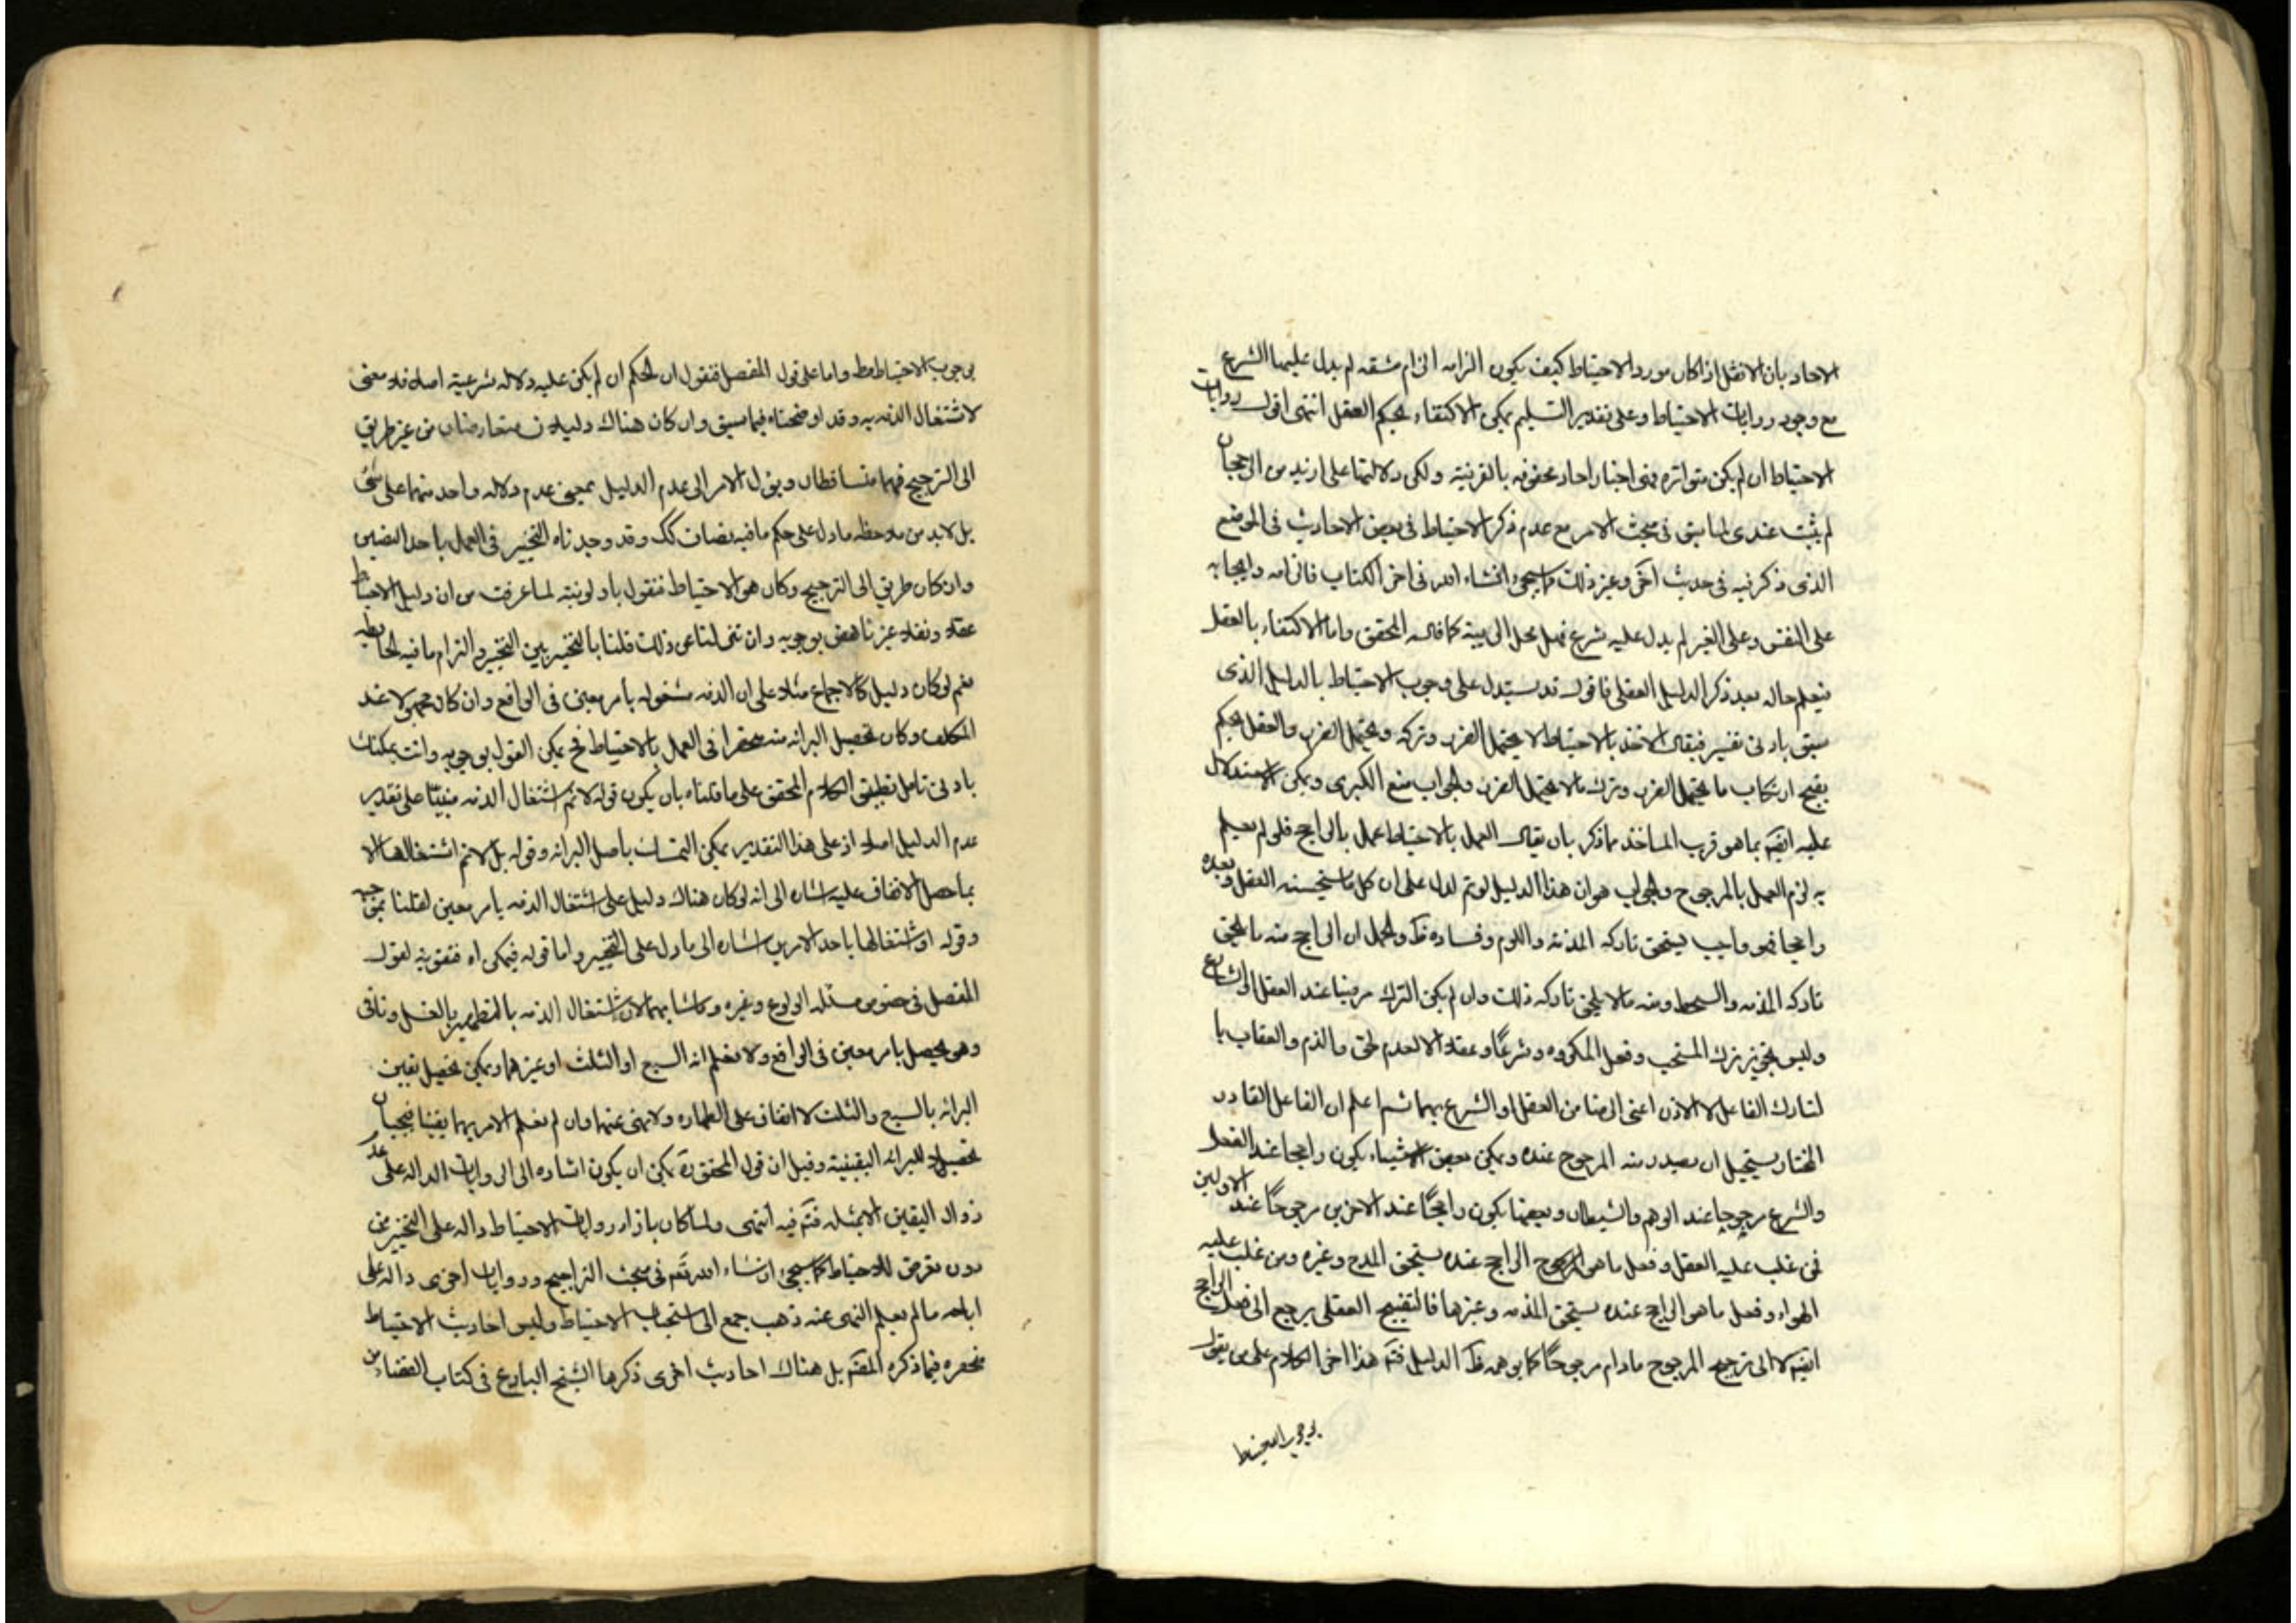 الاحاد بان الاثقل اذا كان مورد الاحتياط كيف يكون الزامه الزام مشقه لم يدل عليها الشرع
مع وجود روايات الاحتياط وعلى تقدير التسليم يمكن الاكتفاء بحكم العقل انتهى اقول روايات
الاحتياط ان لم يكن متواتره فهى اخبار احاد محفوفه بالقرنية ولكن دلالتها على ازيد من الرجحان
لم يثبت عندى لما سبق فى مبحث الامر مع عدم ذكر الاحتياط فى بعض الاحاديث فى الموضع
الذى ذكر فيه فى حديث آخر وغير ذلك كما سيجئ انشاء الله فى اخر الكتاب فالزامه وايجابه
على النفس وعلى الغير لم يدل عليه شرع فهل يحل الى بينة كما قاله المحقق واما الاكتفاء بالعقل
فيعلم حاله بعد ذكر الدليل العقلى فاقول قد يستدل على وجوب الاحتياط بالدليل الذى
سبق بادنى تغيير فيقال الاخذ بالاحتياط لا يحتمل الضرر وتركه يحتمل الضرر والعقل يحكم
بقبح ارتكاب ما يحتمل الضرر وترك ما لا يحتمل الضرر والجواب منع الكبرى ويمكن الاستدلال
عليه ايضً بما هو قرب الماخذ مما ذكر بان يقال العمل بالاحتياط عمل بالراجح فلو لم يعلم
به لزم العمل بالمرجوح والجواب هو ان هذا الدليل لو تم لدل على ان كل ما يستحسنه العقل ويعده
راجحا فهو واجب يستحق تاركه المذمة واللوم وفساده ظ والحل ان الراجح منه ما يلحق
تاركه المذمه والسخط ومنه ما لا يلحق تاركه ذلك وان لم يكن الترك مرضيا عند العقل او الشارع
وليس تجويز ترك المستحب وفعل المكروه شرعًا وعقلا الا لعدم لحوق الذم والعقاب
لتارك الفاعل لا الاذن اعنى الرضا من العقل او الشرع بهما ثم اعلم ان الفاعل القادر
المختار يستحيل ان يصدر منه المرجوح عنده ويمكن بعض الاشياء يكون راجحا عند العقل
والشرع مرجوحا عند الوهم والشيطان وبعضها يكون راجحًا عند الاخرين مرجوحًا عند الاولين
فمن غلب عليه العقل وفعل ما هو الراجح عنده يستحق المدح وغيره ومن غلب عليه
الهواء وفعل ما هو الراجح عنده يستحق المذمه وغيرها فالتقبيح العقلى يرجع الى فعل الراجح
ايضً لا الى ترجيح المرجوح مادام مرجوحًا كما يوهمه ظ الدليل فتم هذا اخر الكلام على من يقول
بوجوب الاحتياط
بوجوب الاحتياط مط واما على قول المفصل فنقول ان الحكم ان لم يكن عليه دلاله شرعية اصلا فلا معنى
لاشتغال الذمه به وقد اوضحناه فيما سبق وان كان هناك دليلان متعارضان من غير طريق
الى الترجيح فهما متساقطان ويؤل الامر الى عدم الدليل بمعنى عدم دلاله واحد منهما على شئ
بل لابد من ملاحظه ما دل على حكم ما فيه نصان كك وقد وجدناه التخيير فى العمل باحد النصين
وان كان طريق الى الترجيح وكان هو الاحتياط فنقول باولويته لما عرفت من ان دليل الاحتياط
عقلا ونقلا غير ناهض بوجوبه وان تنزلنا عن ذلك قلنا بالتخيير بين التخيير والتزام ما فيه الحائطه
نعم لو كان دليل كالاجماع مثلا على ان الذمه مشغوله بامر معين فى الواقع وان كان مجهولا عند
المكلف وكان تحصيل البرائه منه منحصرا فى العمل بالاحتياط فح يمكن القول بوجوبه وانت يمكنك
بادنى تامل تطبيق الكلام المحقق على ما قلناه بان يكون قوله لا نم اشتغال الذمه مبنيًا على تقدير
عدم الدليل اصلا اذ على هذا التقدير يمكن التمسك باصل البرائه وقوله بل لا نم اشتغالها الا
بما حصل الاتفاق عليه اشاره الى انه لو كان هناك دليل على اشتغال الذمه بامر معين لقلنا بموجبه
وقوله او اشتغالها باحد الامرين اشاره الى ما دل على التخيير واما قوله فيمكن اه فتقوية لقول
المفصل فى خصوص مسئله الولوغ وغيره وما شابهها لان اشتغال الذمه بالتطهير بالغسل وناقى
وهو يحصل بامر معين فى الواقع ولا نعلم انه السبع او الثلث او غيرهما ويمكن تحصيل تعيين
البرائه بالسبع والثلث لاتفاق على الطهاره ولا نهى عنها وان لم نعلم الامر بهما يقينا فيجبان
تحصيلا للبرائه اليقينية وقيل ان قول المحقق ره يمكن ان يكون اشاره الى الروايات الداله على عدم
زوال اليقين الا بمثله فتم فيه انتهى ولما كان بازاء روايات الاحتياط داله على التخيير من
دون تعرض للاحتياط كما سيجئ ان شاء الله تعم فى مبحث التراجيح وروايات اخرى داله على
اباحه ما لم يعلم النهى عنه ذهب جمع الى استحباب الاحتياط وليس احاديث الاحتياط
منحصره فيما ذكره المصم بل هناك احاديث اخرى ذكرها الشيخ البارع فى كتاب القضاء من